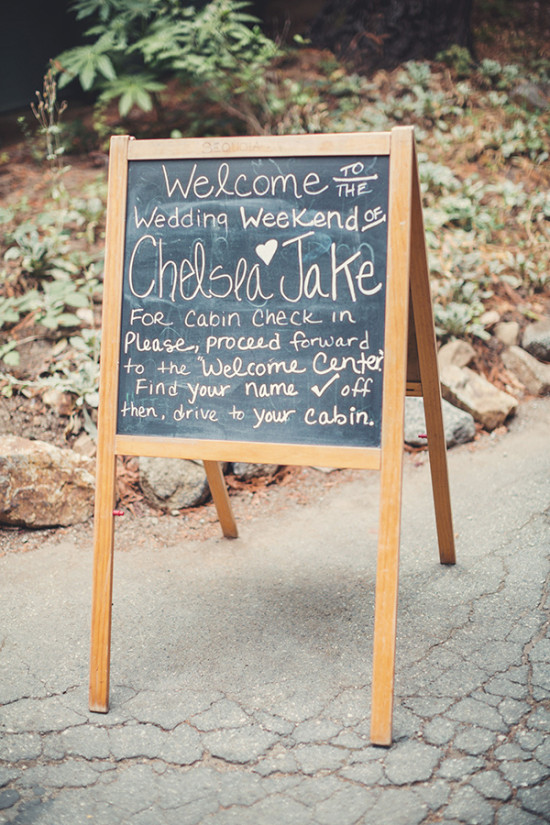 Welcome TO THE
Wedding Weekend OF
Chelsea ♥ Jake
FOR Cabin Check in
Please, proceed forward
to the "Welcome Center".
Find your name ✓ off
then, drive to your cabin.